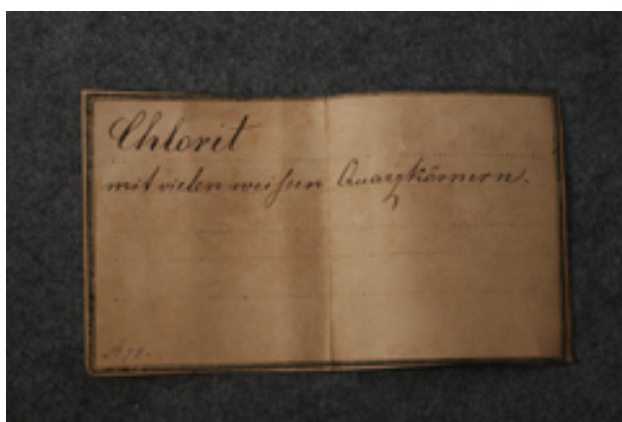 Chlorit
mit vielen weißen Quarzkörnern.